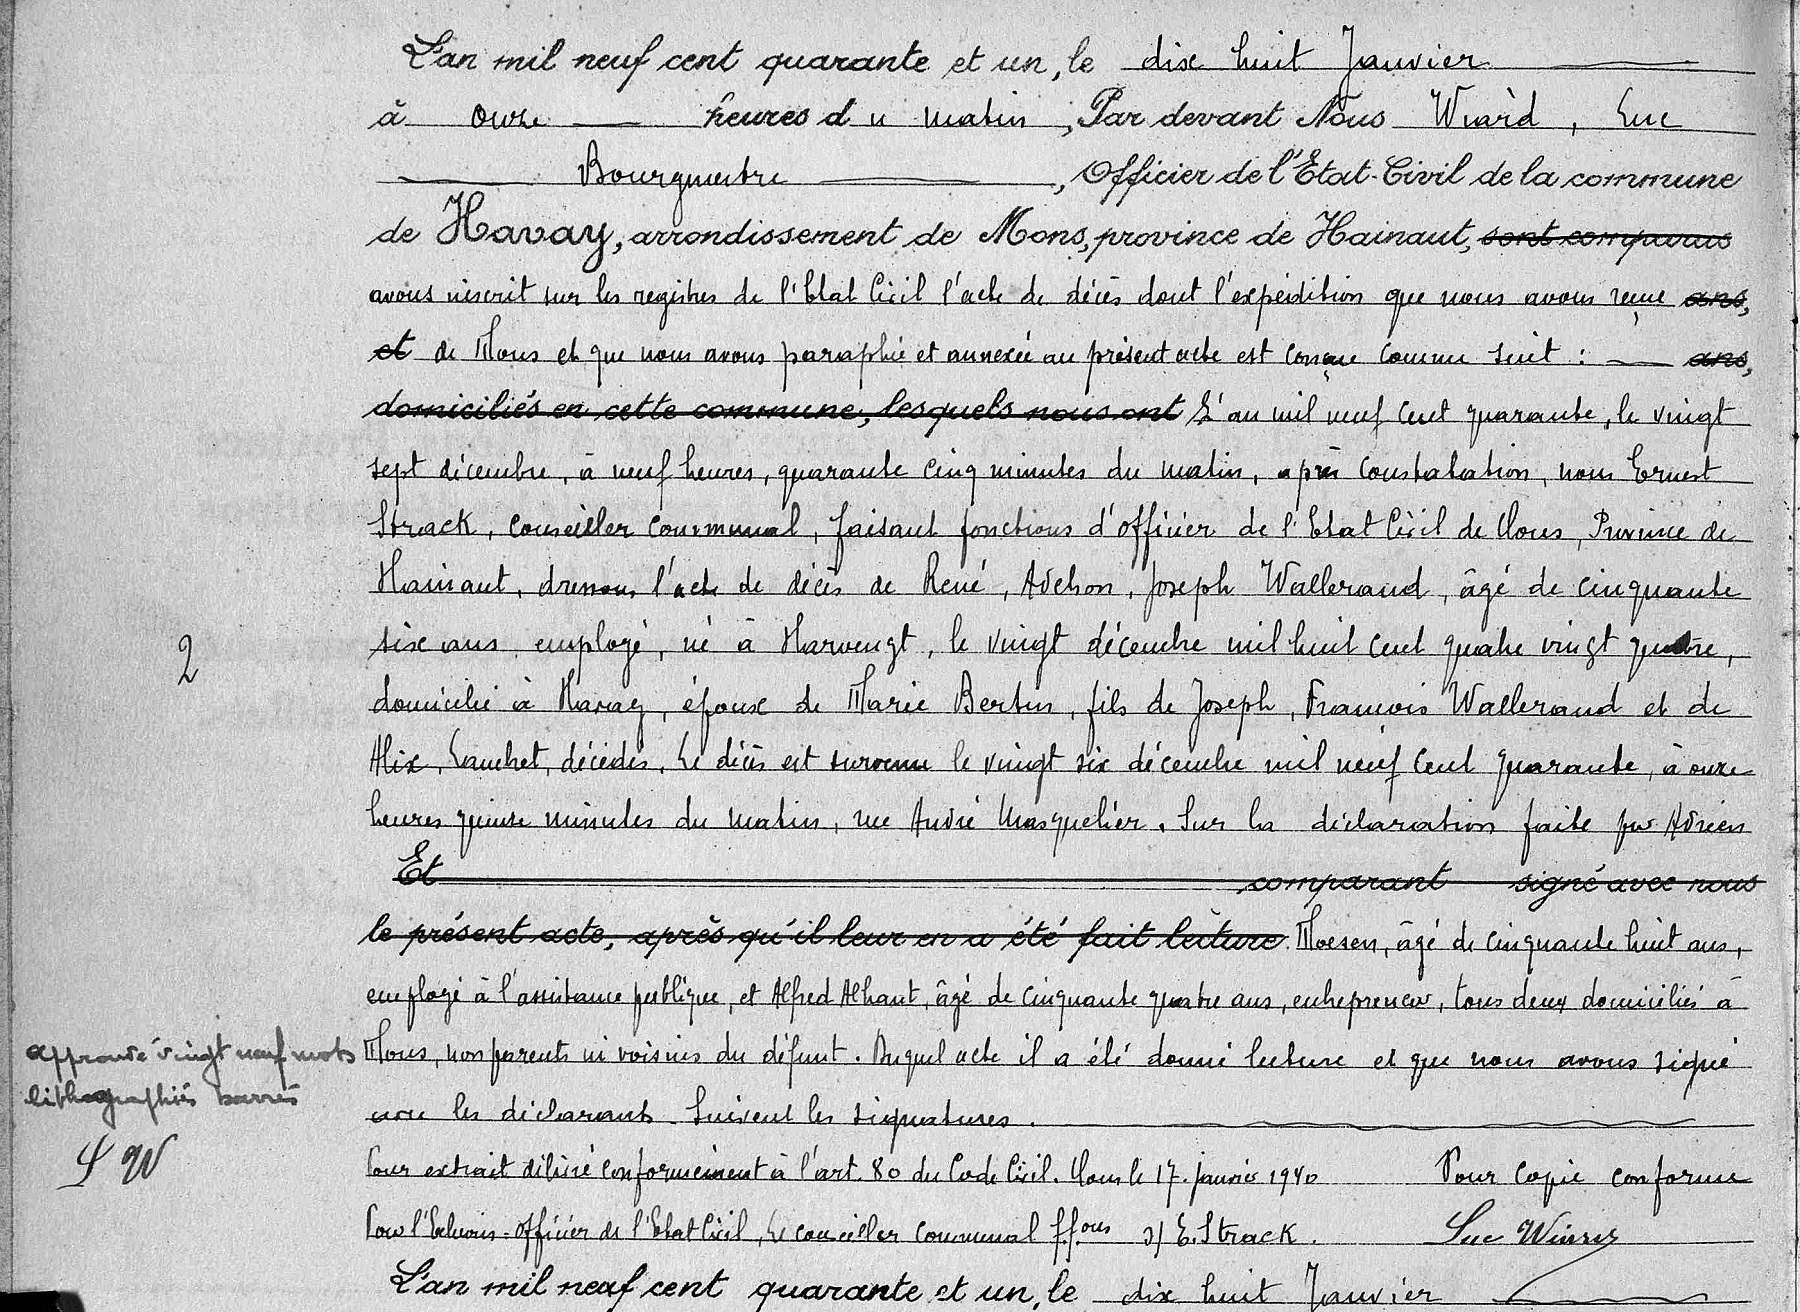 L'an mil neuf cent quarante et un, le dix huit Janvier
à onze heures du matin, Par devant Nous Wiard, Luc
Bourgmestre, Officier de l'Etat-Civil de la commune
de Havay, arrondissement de Mons, province de Hainaut, sont comparus
avons inscrit sur les registres de l'Etat Civil l'acte de décès dont l'expédition que nous avons reçue ans,
et de Mons et que nous avons paraphée et annexée au présent acte est conçue comme suit : ans,
domiciliés en cette commune, lesquels nous ont L'an mil neuf cent quarante, le vingt
sept décembre, à neuf heures, quarante cinq minutes du matin, après constatation, nous Ernest
Strack, conseiller communal, faisant fonctions d'officier de l'Etat Civil de Mons, Province de
Hainaut, dressons l'acte de décès de René, Adelson, Joseph Wallerand, âgé de cinquante
six ans employé, né à Harvengt, le vingt décembre mil huit cent quatre vingt quatre,
domicilié à Havay, époux de Marie Bertin, fils de Joseph, François Wallerand et de
Alix, Lauchet, décédés. Le décès est survenu le vingt six décembre mil neuf cent quarante, à onze
heures quinze minutes du matin, rue André Masquelier. Sur la déclaration faite par Adrien
Et comparant signé avec nous
le présent acte, après qu'il leur en a été fait lecture. Moesen, âgé de cinquante huit ans,
employé à l'assistance publique, et Alfred Alhant, âgé de cinquante quatre ans, entrepreneur, tous deux domiciliés à
Mons, non parents ni voisins du défunt. Duquel acte il a été donné lecture et que nous avons signé
avec les déclarants. Suivent les signatures.
Approuvé vingt neuf mots
lithographiés barrés
L W
2
Pour extrait délivré conformément à l'art. 80 du Code Civil. Mons le 17 janvier 1940 Pour copie conforme
Pour l'Echevin-officier de l'Etat Civil, Le conseiller communal ff.ons s/ E. Strack. Luc Wiard
L'an mil neuf cent quarante et un, le dix huit Janvier